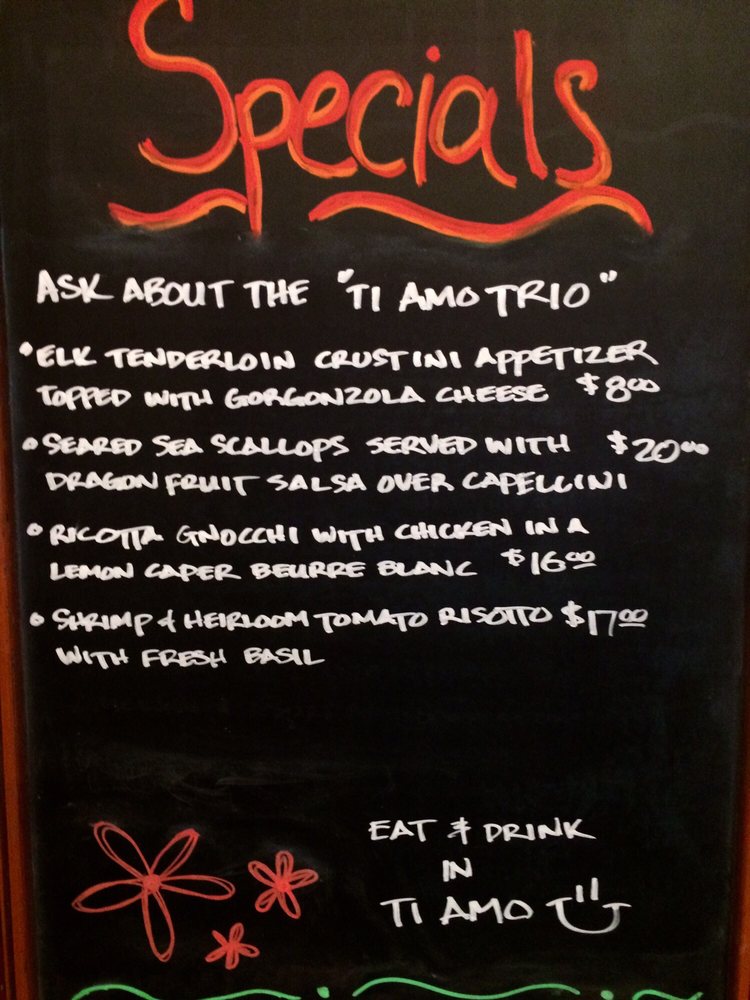 Specials
ASK ABOUT THE "TI AMO TRIO"
• ELK TENDERLOIN CRUSTINI APPETIZER
TOPPED WITH GORGONZOLA CHEESE $8.00
• SEARED SEA SCALLOPS SERVED WITH $20.00
DRAGON FRUIT SALSA OVER CAPELLINI
• RICOTTA GNOCCHI WITH CHICKEN IN A
LEMON CAPER BEURRE BLANC $16.00
• SHRIMP & HEIRLOOM TOMATO RISOTTO $17.00
WITH FRESH BASIL
EAT & DRINK
IN
TI AMO